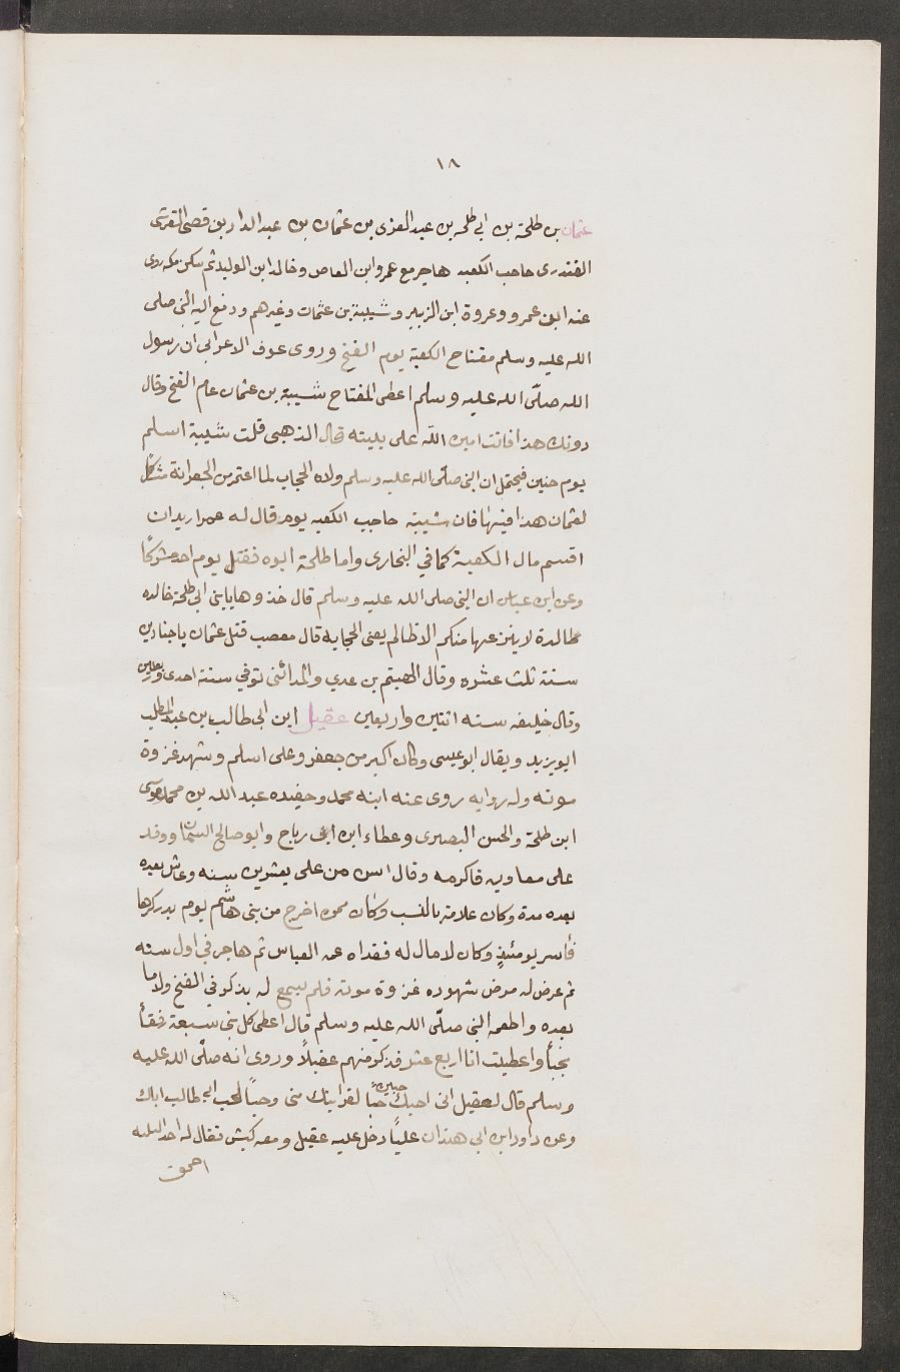 ١٨
عثمان بن طلحة بن ابي طلحه بن عبد العزى بن عثمان بن عبد الدار بن قصى القرشى
حاجب الكعبه هاجر مع عمرو ابن العاص وخالد ابن الوليد ثم سكن مكه روى
عنه ابن عمرو وعروة ابن الزبير وشيبة بن عثمان وغيرهم ودفع اليه النبي صلى
الله عليه وسلم مفتاح الكعبة يوم الفتح وروى عوف الاعرابي ان رسول
الله صلّى الله عليه وسلم اعطى المفتاح شيبة بن عثمان عام الفتح وقال
دونك هذا فانت امين اللّه على بيته قال الذهبي قلت شيبة اسلم
يوم حنين فيحتمل ان النبي صلّى الله عليه وسلم ولاه الحجاب لما اعتمر من الجعرانة مشكّا
لعثمان هذا فيها فان شيبة حاجب الكعبه يوم قال له عمر اريد ان
اقسم مال الكعبة كما في البخارى واما طلحة ابوه فقتل يوم احد مشركًا
وعن ابن عباس ان النبي صلى الله عليه وسلم قال خذوها يا بني ابي طلحة خالده
تالدة لا ينزعها منكم الا ظالم يعنى الحجابه قال مصعب قتل عثمان باجنادين
سنة ثلث عشره وقال الهيثم بن عدي والمدائني توفي سنة احدى واربعين
وقال خليفه سنه اثنتين واربعين عقيل ابن ابي طالب بن عبد المطلب
ابو يزيد ويقال ابو عيسى وكان اكبر من جعفر وعلى اسلم وشهد غزوة
موته وله روايه روى عنه ابنه محمد وحفيده عبد الله بن محمد وموسى
ابن طلحة والحسن البصرى وعطاء ابن ابي رباح وابو صالح السمان ووفد
على معاويه فاكرمه وقال اسن من على بعشرين سنه وعاش بعده
بعده مدة وكان علامة بالنسب وكان ممن اخرج من بني هاشم يوم بدر كرها
فأسر يومئذٍ وكان لا مال له ففداه عمه العباس ثم هاجر في اول سنه
ثم عرض له مرض شهوده غزوة موته فلم يسمع له بذكر في الفتح ولا ما
بعده واطعمه النبي صلّى الله عليه وسلم قال اعطى كل نبي سبعة رفقأ
نجبأ واعطيت انا اربع عشر فذكر منهم عقيلًا وروى انه صلّى الله عليه
وسلم قال لعقيل انى احبك حبين حبًا لقرابتك منى وحبًا لحب ابي طالب اياك
وعن داود ابن ابي هند ان عليًا دخل عليه عقيل ومعه كبش فقال له احد الثلثه
احمق